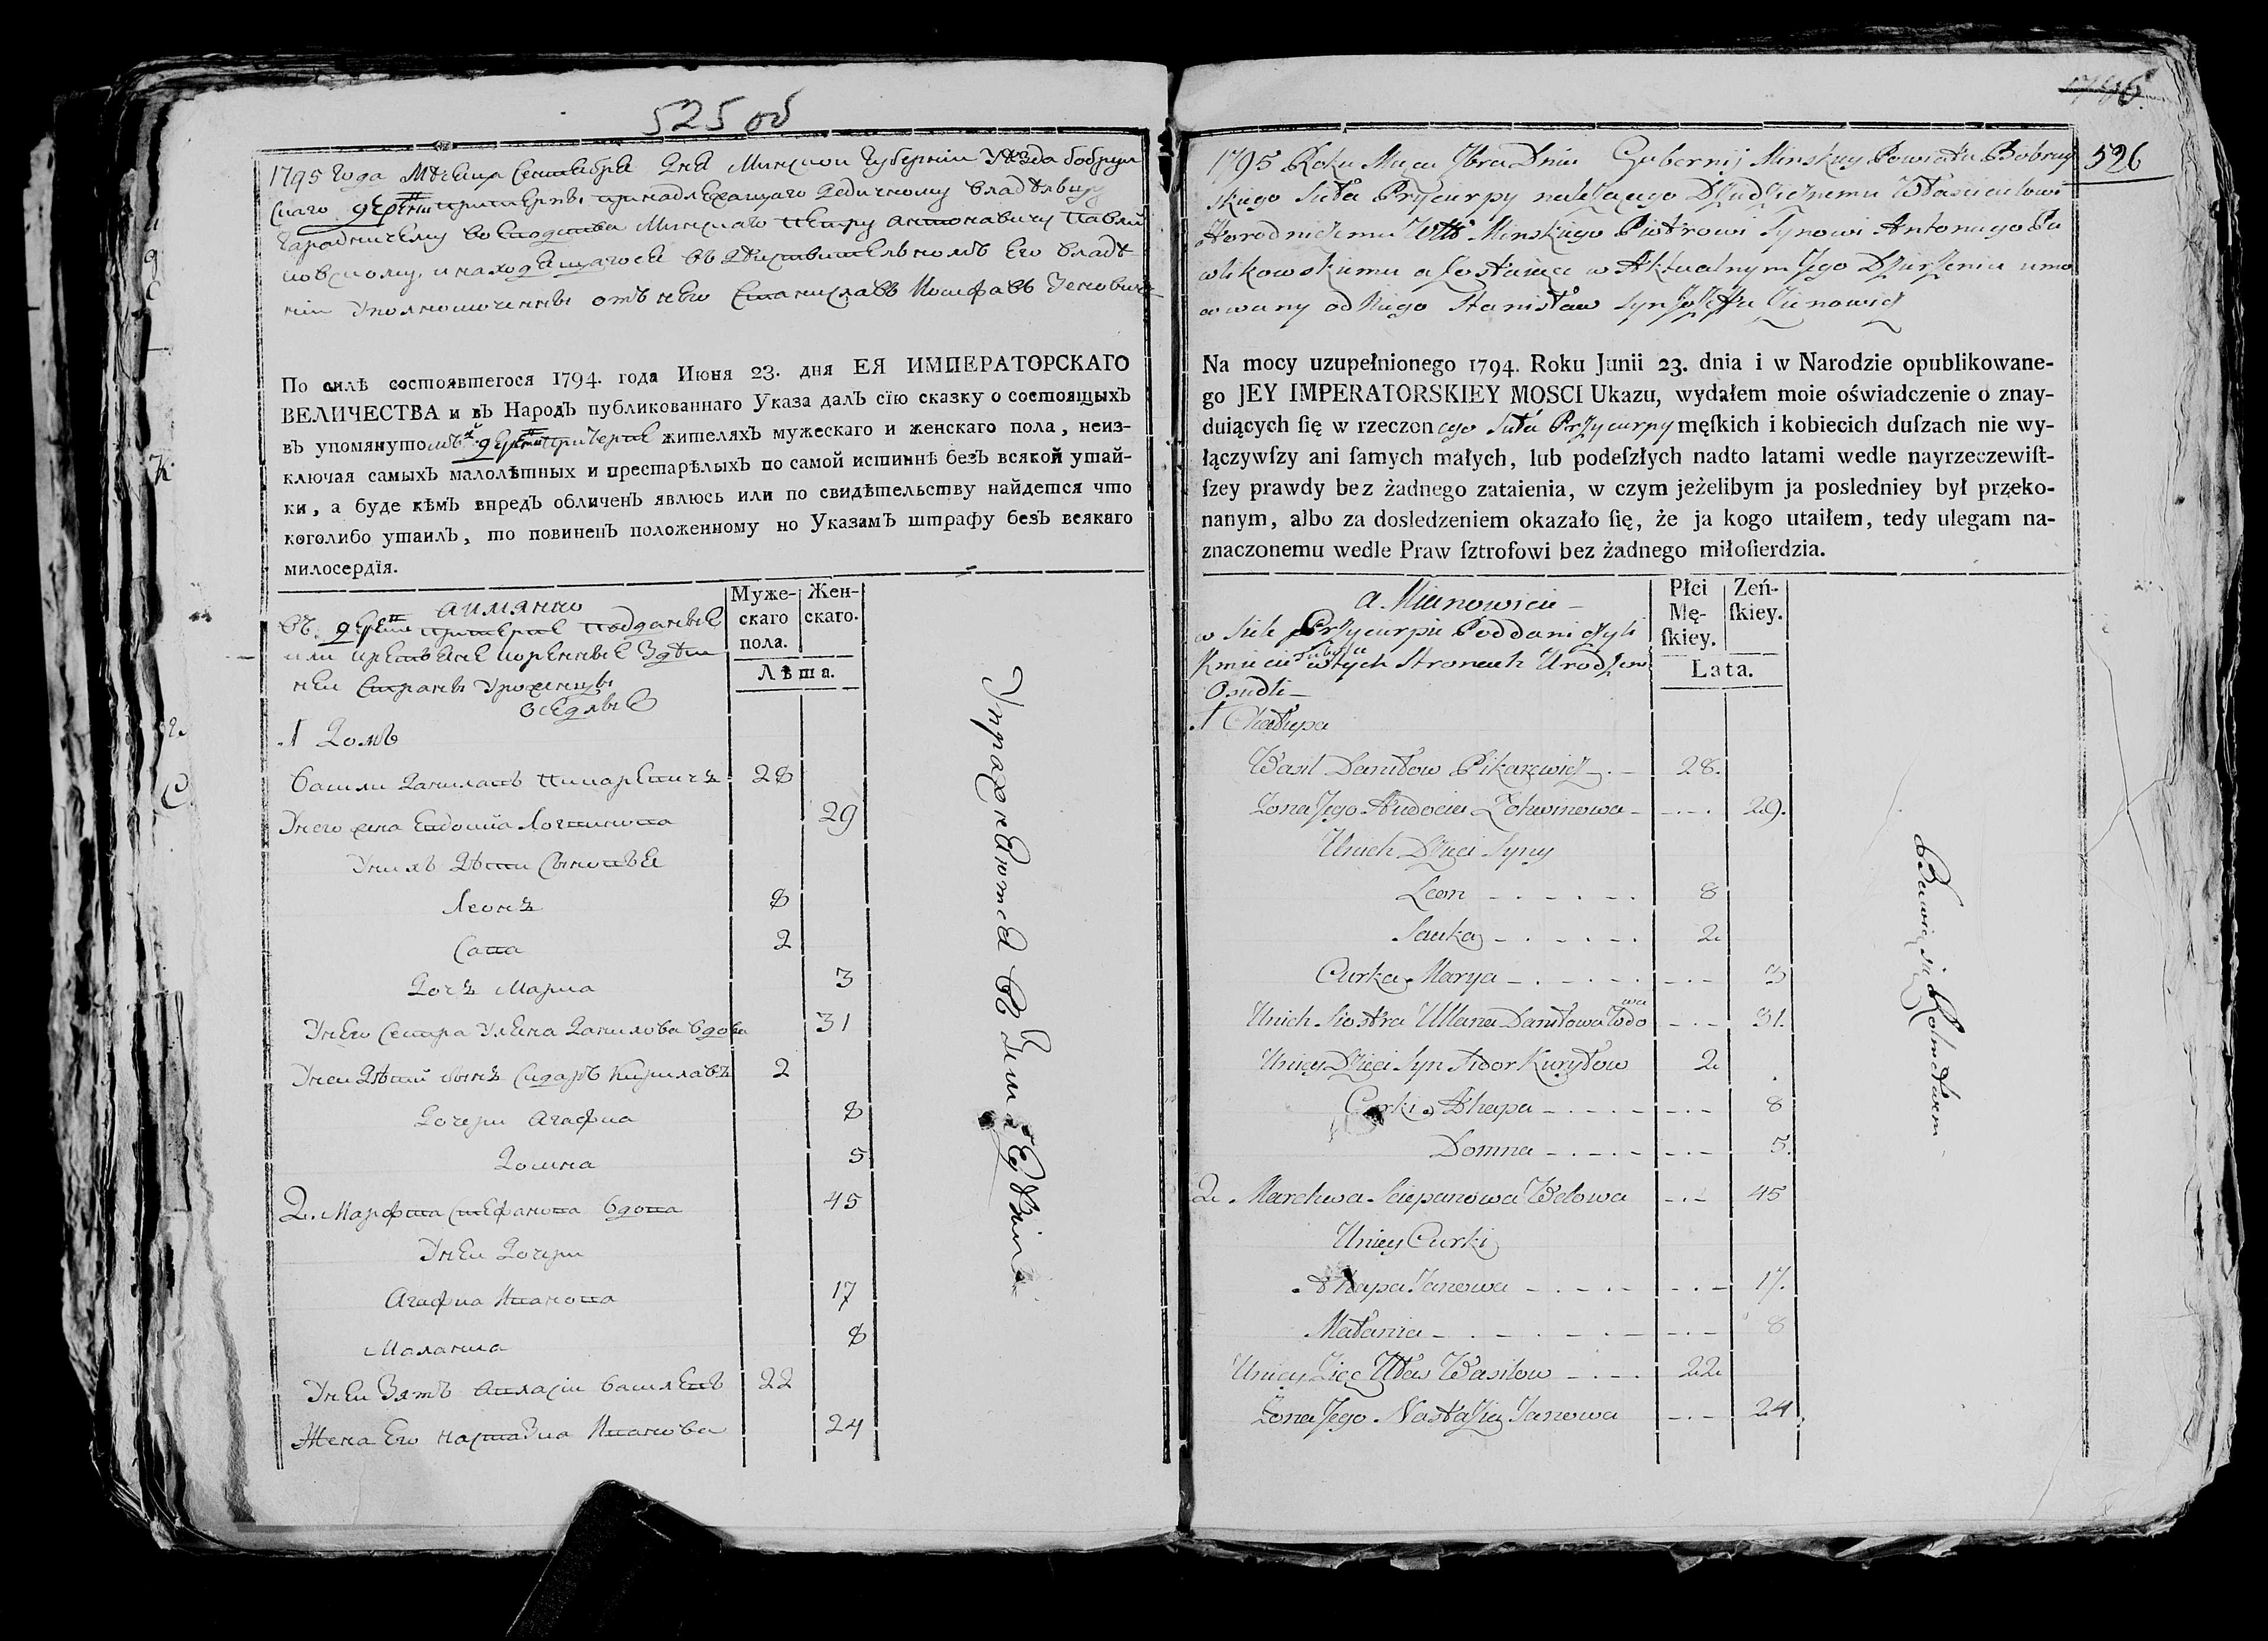 525 об
1795 Года Мѣсяца Сентебра Дня Минской Губерніи Уѣзда бобруй
скаго дереvни причерпы принадлежащаго дедичному владѣльцу
Городничему воеводства Минскаго Петру антоновичу Павли
ковскому, и находящагося въ действительномъ Его владѣ
ніи уполномоченны отъ него Станиславъ Иосифавъ Зенович
По силѣ состоявшегося 1794. года Июня 23. дня ЕЯ ИМПЕРАТОРСКАГО
ВЕЛИЧЕСТВА и въ Народъ публикованнаго Указа далъ сїю сказку о состоящыхъ
въ упомянутомъ жителяхъ мужескаго и женскаго пола, неиз-
ключая самыхъ малолѣтныхъ и престарѣлыхъ по самой истиннѣ безъ всякой утай-
ки, а буде кѣмъ впредъ обличенъ явлюсь или по свидѣтельству найдется что
коголибо утаилъ, то повиненъ положенному по Указамъ штрафу безъ всякаго
милосердїя.
Муже- Жен-
скаго скаго.
пола.
Лѣта.
аимянно
въ подданые
или крестьяне коренные Здѣш
неи Страны Уроженцы
Оседлые
1 Домъ
Васили Данилавъ Пикаревичъ 28
Унего жена Евдокиа Логвинова 29
Унихъ Дѣти Сыновья
Леонъ 8
Сава 2
Дочъ Мариа 3
Унего Сестра Уляна Данилова вдова 31
Унеи Дѣтей сынъ Сидаръ Кирилавъ 2
Дочери Агафиа 8
Домна 5
2. Марфва Стефанова вдова 45
Унеи Дочери
Агафиа Иванова 17
Маланиа 8
Унеи Зять Василевъ 22
Жена Его настазиа Иванова 24
Упражняются въ Земледѣліи
526
1795 Roku Mca 7bra Dnia Gubernij Minskiey Powiatu Bobruy
skiego Sioła Przycierpy należącego Dziedzicznemu Właścicielowi
Horodniczemu Wttwa Minskiego Piotrowi Synowi Antoniego Pa
wlikowskiemu a zostaiące w Aktualnym Jego Dzierżeniu umo
cowany od Niego Stanisław Syn Jozefa Zienowicz
Na mocy uzupełnionego 1794. Roku Junii 23. dnia i w Narodzie opublikowane-
go JEY IMPERATORSKIEY MOSCI Ukazu, wydałem moie oświadczenie o znay-
duiących ſię w rzeczonego Sioła Przycierpy męſkich i kobiecich duſzach nie wy-
łączywſzy ani ſamych małych, lub podeſzłych nadto latami wedle nayrzeczewiſt-
ſzey prawdy bez żadnego zataienia, w czym jeżelibym ja posledniey był przeko-
nanym, albo za dosledzeniem okazało ſię, że ja kogo utaiłem, tedy ulegam na-
znaczonemu wedle Praw ſztrofowi bez żadnego miłoſierdzia.
Płci Zeń-
Mę- ſkiey.
ſkiey.
Lata.
a Mianowicie
w Siele Przycierpie Poddani czyli
Kmiecie w tych Stronach Urodzeni
Osiedli
1 Chałupa
Wasil Daniłow Pikarewicz 28.
Zona Jego Audocia Łohwinowa 29.
Unich Dzieci Syny
Leon 8
Sauka 2
Curka Marya 3
Unich Siostra Ullana Daniłowa Wdowa 31.
Uniey Dzieci Syn Sidor Kuryłow 2
Curki Ahapa 8
Domna 5.
2. Marchwa Sciepanowa Wdowa 45
Uniey Curki
Ahapa Janowa 17.
Małania 8
Uniey Zięc Ułas Wasilow 22
Żona Jego Nastazia Janowa 24.
Bawią się Rolnictwem